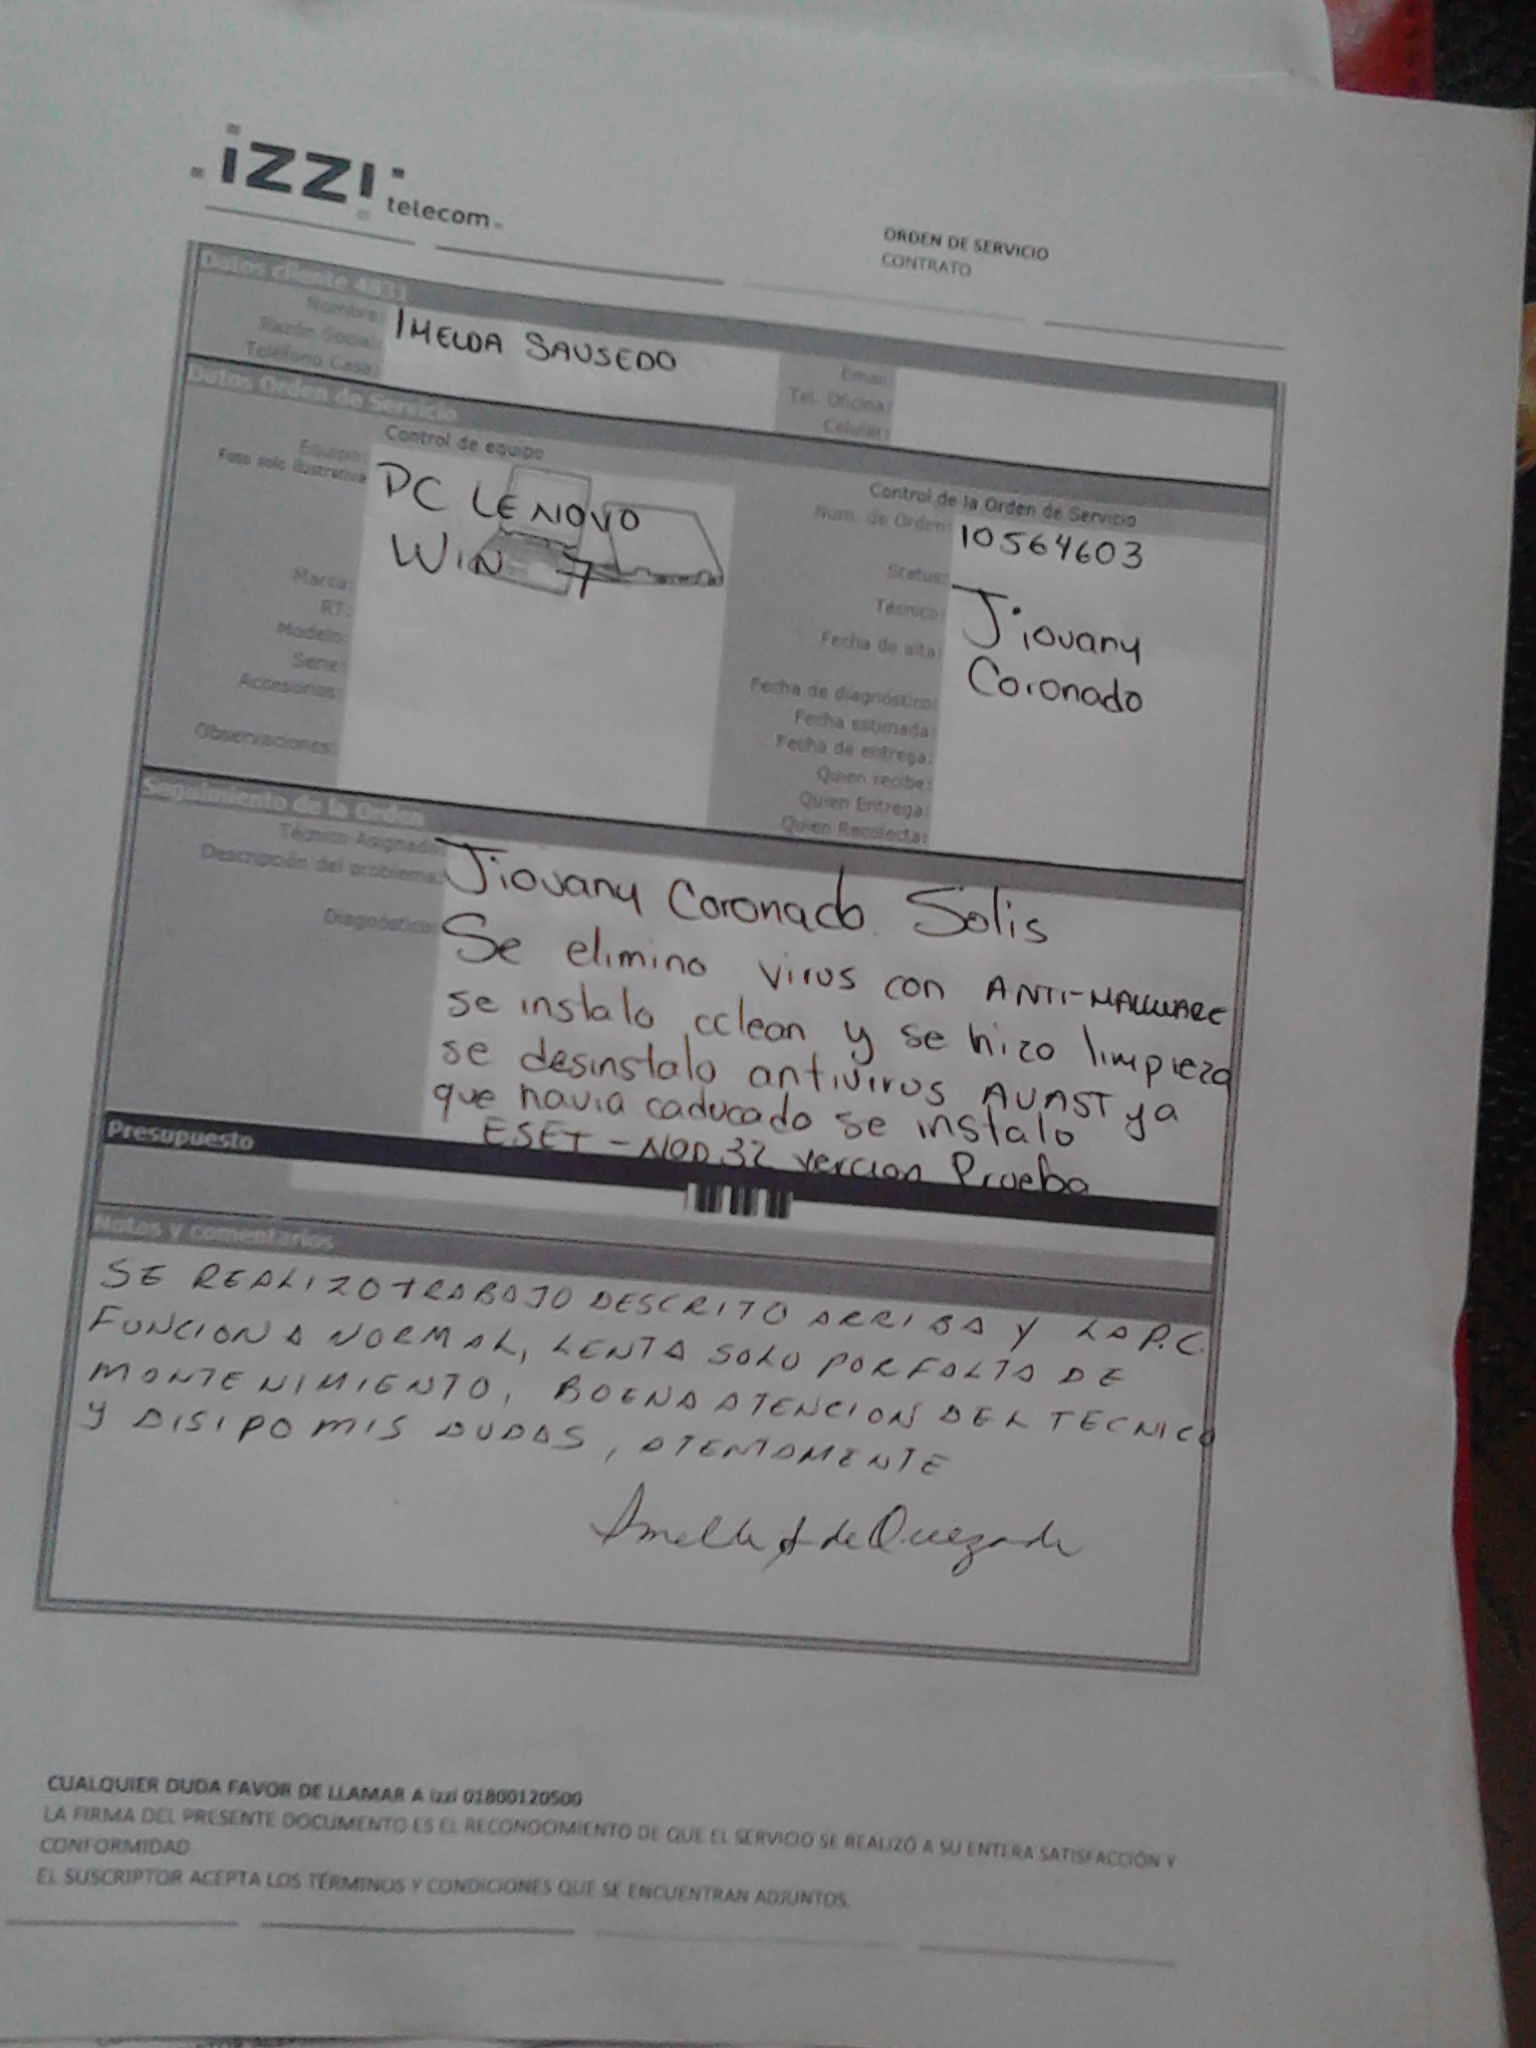 izzi telecom
ORDEN DE SERVICIO
CONTRATO
Datos cliente 4831
Nombre: IMELDA SAUSEDO
Razón Social:
Teléfono Casa:
Email:
Tel. Oficina:
Celular:
Datos Orden de Servicio
Control de equipo
Equipo: PC LENOVO
Foto solo ilustrativa
WIN 7
Marca:
RT:
Modelo:
Serie:
Accesorios:
Observaciones:
Control de la Orden de Servicio
Num. de Orden: 10564603
Status:
Técnico: Jiovany
Coronado
Fecha de alta:
Fecha de diagnóstico:
Fecha estimada:
Fecha de entrega:
Quien recibe:
Quien Entrega:
Quien Recolecta:
Seguimiento de la Orden
Técnico Asignado: Jiovany Coronado Solis
Descripción del problema:
Diagnóstico: Se elimino virus con ANTI-MALWARE
se instalo cclean y se hizo limpieza
se desinstalo antivirus AVAST ya
que havia caducado se instalo
ESET-NOD32 vercion Prueba
Presupuesto
Notas y comentarios
SE REALIZO TRABAJO DESCRITO ARRIBA Y LA P.C.
FUNCIONA NORMAL, LENTA SOLO POR FALTA DE
MONTENIMIENTO, BUENA ATENCION DEL TECNICO
Y DISIPO MIS DUDAS, ATENTAMENTE
de Quezada
CUALQUIER DUDA FAVOR DE LLAMAR A izzi 01800120500
LA FIRMA DEL PRESENTE DOCUMENTO ES EL RECONOCIMIENTO DE QUE EL SERVICIO SE REALIZÓ A SU ENTERA SATISFACCIÓN Y
CONFORMIDAD
EL SUSCRIPTOR ACEPTA LOS TÉRMINOS Y CONDICIONES QUE SE ENCUENTRAN ADJUNTOS.